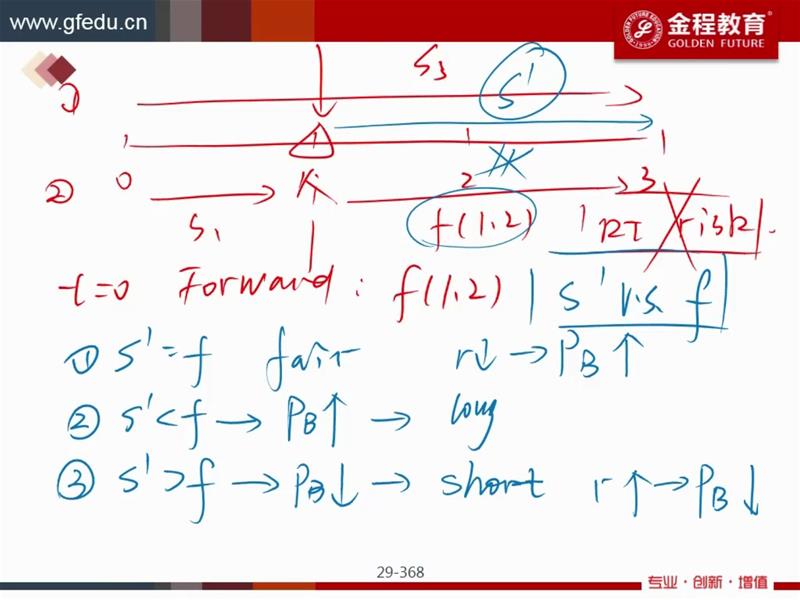 www.gfedu.cn
金程教育
GOLDEN FUTURE
S₃ S'
①
0 1 2 3
②
S₁ f(1,2) RI risk.
t=0 Forward: f(1,2) | S' v.s. f
① S'=f fair r↓→P_B↑
② S'<f→P_B↑→long
③ S'>f→P_B↓→short r↑→P_B↓
29-368
专业·创新·增值